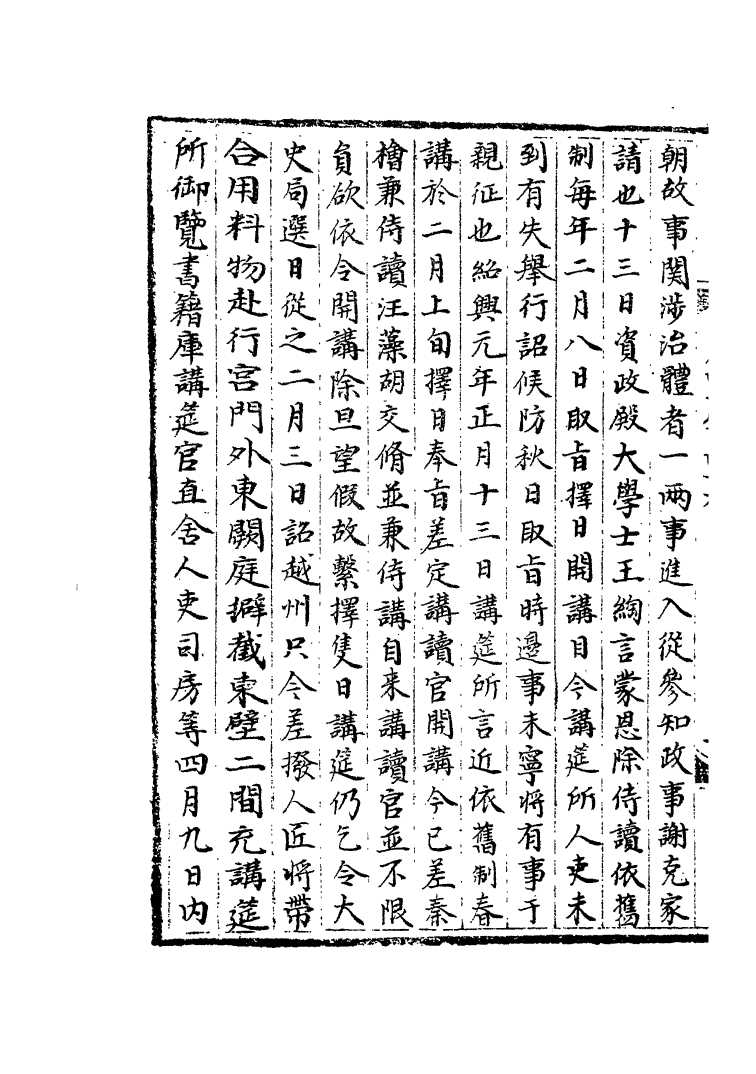 朝故事関涉治體者一兩事進入從參知政事謝克家
請也十三日資政殿大學士王綯言蒙恩除侍讀依舊
制每年二月八日取㫖擇日開講目今講筵所人吏未
到有失舉行詔候防秋日取㫖時邊事未寧將有事于
親征也紹興元年正月十三日講筵所言近依舊制春
講於二月上旬擇日奉㫖差定講讀官開講今已差秦
檜兼侍讀汪藻胡交脩並兼侍講自来講讀官並不限
員欲依令開講除旦望假故繫擇隻日講筵仍乞令大
史局選日從之二月三日詔越州只令差撥人匠將帶
合用料物赴行宮門外東闕庭擗截東壁二間充講筵
所御覽書籍庫講筵官直舍人吏司房等四月九日内